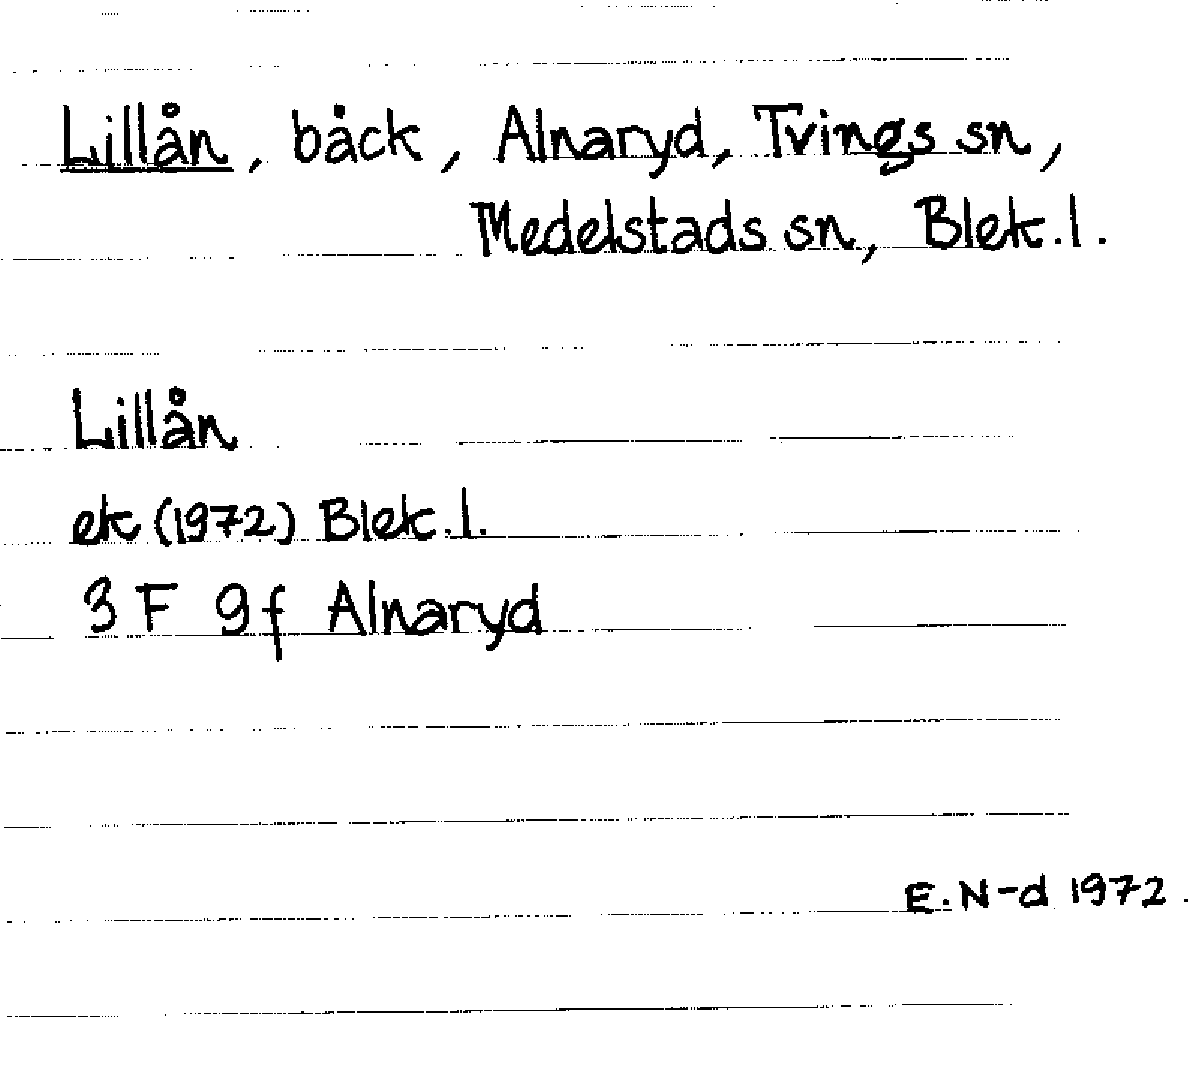 Lillån, bäck, Alnaryd, Tvings sn,
Medelstads sn, Blek. l.
Lillån
ek (1972) Blek. l.
3 F 9f Alnaryd
E. N-d 1972.